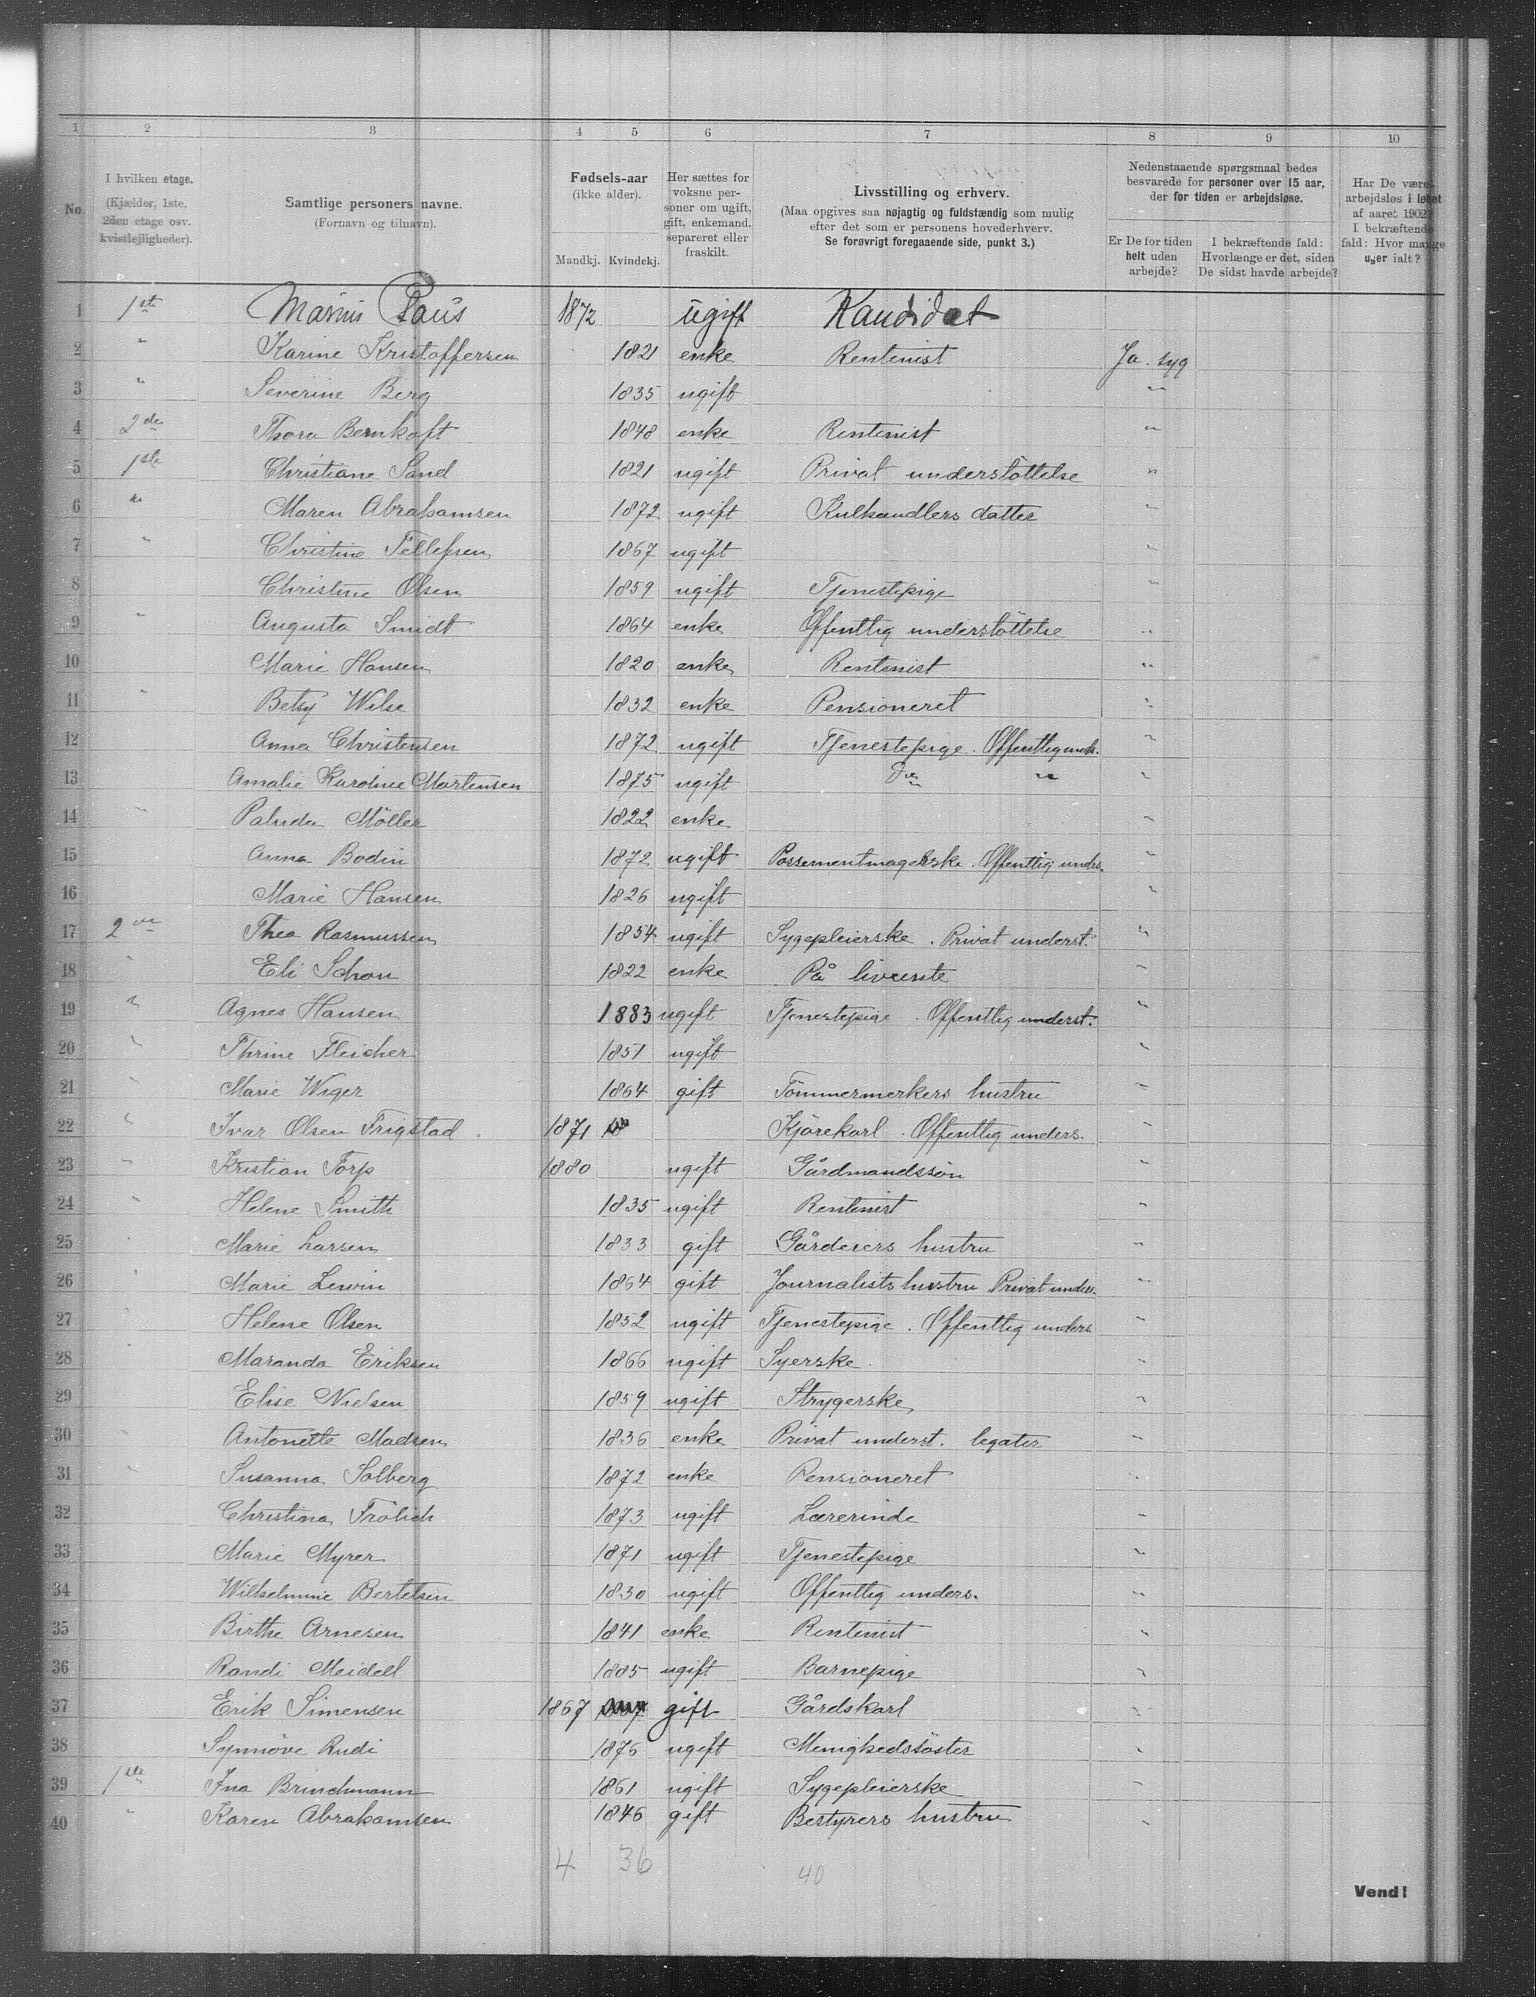 1 2 3 4 5 6 7 8 9 10
No. I hvilken etage. (Kjælder, 1ste, 2den etage osv. kvistlejligheder).
Samtlige personers navne. (Fornavn og tilnavn).
Fødsels-aar (ikke alder). Mandkj. Kvindekj.
Her sættes for voksne personer om ugift, gift, enkemand. separeret eller fraskilt.
Livsstilling og erhverv. (Maa opgives saa nøjagtig og fuldstændig som mulig efter det som er personens hovederhverv. Se forøvrigt foregaaende side, punkt 3.)
Nedenstaaende spørgsmaal bedes besvarede for personer over 15 aar, der for tiden er arbejdsløse.
Er De for tiden helt uden arbejde?
I bekræftende fald: Hvorlænge er det, siden De sidst havde arbejde?
Har De været arbejdsløs i løbet af aaret 1902? I bekræftende fald: Hvor mange uger ialt?
1 1ste Marius Paus 1872 ugift Kandidat
2 " Karine Kristoffersen 1821 enke Rentenist Ja. syg
3 " Severine Berg 1835 ugift "
4 2den Thora Bernhoft 1848 enke Rentenist "
5 1ste Christiane Sand 1821 ugift Privat understöttelse "
6 " Maren Abrahamsen 1872 ugift Kulhandlers datter "
7 " Christine Tellefsen 1867 ugift "
8 Christine Olsen 1859 ugift Tjenestepige "
9 " Augusta Smidt 1864 enke Offentlig understöttelse "
10 Marie Hansen 1820 enke Rentenist "
11 " Betsy Wilse 1832 enke Pensioneret "
12 Anna Christensen 1872 ugift Tjenestepige. Offentlig unds. "
13 Amalie Karoline Martensen 1875 ugift Do " "
14 " Paluda Möller 1822 enke "
15 Anna Bodin 1872 ugift Possementmagerske. Offentlig unders. "
16 Marie Hansen 1826 ugift "
17 2den Thea Rasmussen 1854 ugift Sygepleierske. Privat underst. "
18 " Eli Schou 1822 enke På livrente "
19 " Agnes Hansen 1883 ugift Tjenestepige. Offentlig underst. "
20 " Thrine Fleicher 1851 ugift "
21 " Marie Wiger 1864 gift Tömmermerkers hustru "
22 " Ivar Olsen Frigstad. 1871 Kjörekarl. Offentlig unders. "
23 " Kristian Torp 1880 ugift Gårdmandssön "
24 " Helene Smith 1835 ugift Rentenist "
25 " Marie Larsen 1833 gift Gårdeiers hustru "
26 " Marie Lewin 1864 gift Journalists hustru Privat unders. "
27 " Helene Olsen 1852 ugift Tjenestepige. Offentlig unders "
28 " Maranda Eriksen 1866 ugift Syerske. "
29 " Elise Nielsen 1859 ugift Strygerske "
30 " Antonette Madsen 1836 enke Privat underst. legater "
31 " Susanna Solberg 1872 enke Pensioneret "
32 Christina Frölich 1873 ugift Lærerinde "
33 Marie Myrer 1871 ugift Tjenestepige "
34 Wilhelmine Bertelsen 1830 ugift Offentlig unders. "
35 Birthe Arnesen 1841 enke Rentenist "
36 Randi Meidell 1885 ugift Barnepige "
37 Erik Simensen 1867 gift Gårdskarl "
38 Synnöve Rudi 1876 ugift Menighedssöster "
39 1ste Ina Brinchmann 1861 ugift Sygepleierske "
40 " Karen Abrahamsen 1846 gift Bestyrers hustru "
4 36 40
Vend!